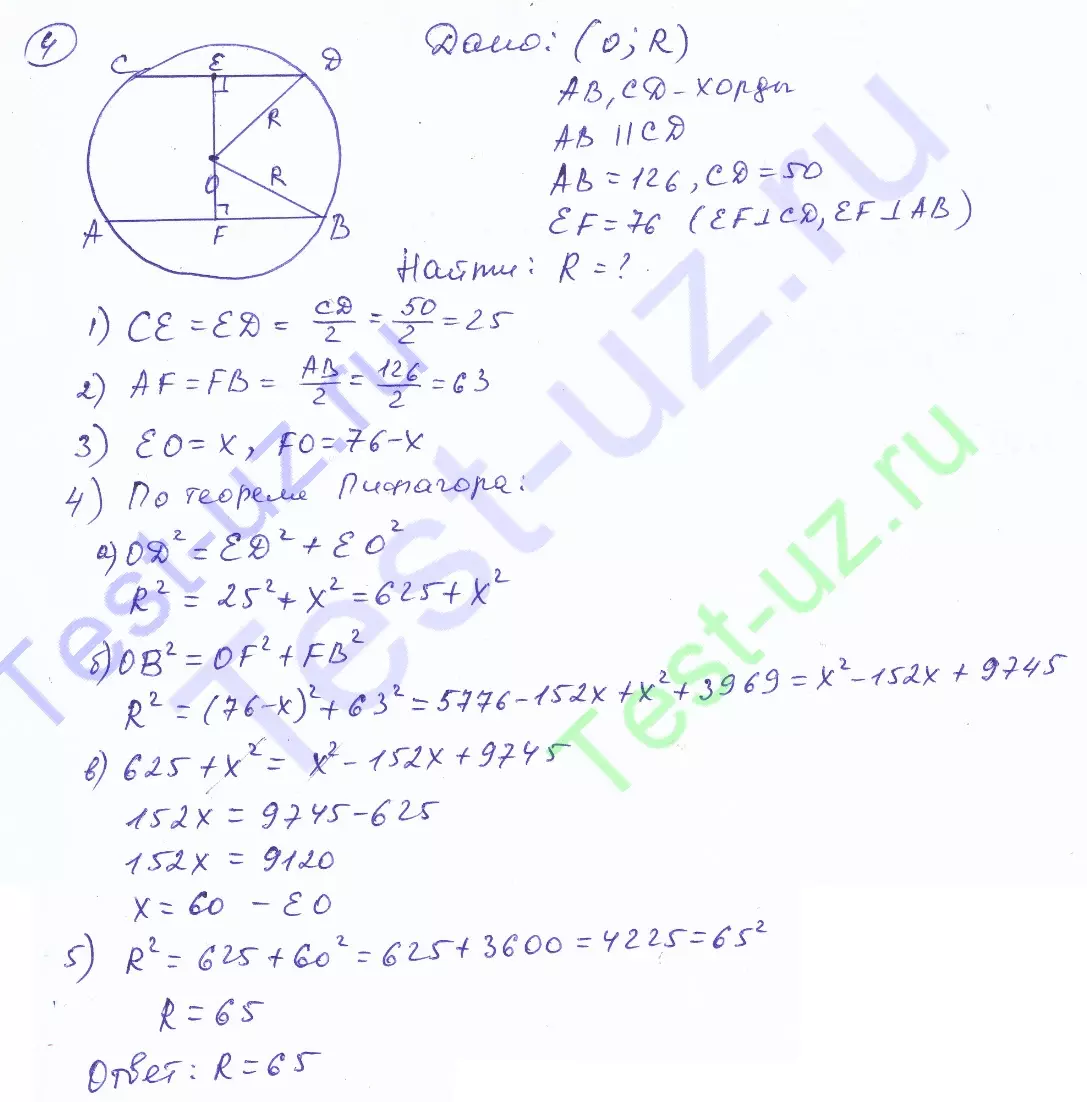 4
Дано: (O; R)
AB, CD - хорды
AB || CD
AB = 126, CD = 50
EF = 76 (EF⊥CD, EF⊥AB)
Найти: R = ?
C E D
R
O R
A F B
1) CE = ED = CD/2 = 50/2 = 25
2) AF = FB = AB/2 = 126/2 = 63
3) EO = x, FO = 76 - x
4) По теореме Пифагора:
а) OD² = ED² + EO²
R² = 25² + x² = 625 + x²
б) OB² = OF² + FB²
R² = (76 - x)² + 63² = 5776 - 152x + x² + 3969 = x² - 152x + 9745
в) 625 + x² = x² - 152x + 9745
152x = 9745 - 625
152x = 9120
x = 60 - EO
5) R² = 625 + 60² = 625 + 3600 = 4225 = 65²
R = 65
Ответ: R = 65
Test-uz.ru
Test-uz.ru
Test-uz.ru